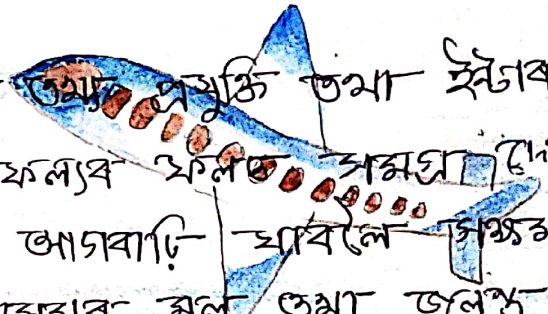 তথ্য প্ৰযুক্তি তথা ইন্টাৰ
ফল্যৰ ফলত সমগ্ৰ
আগবাঢ়ি যাবলৈ সক্ষম
মূল তথা জলন্ত